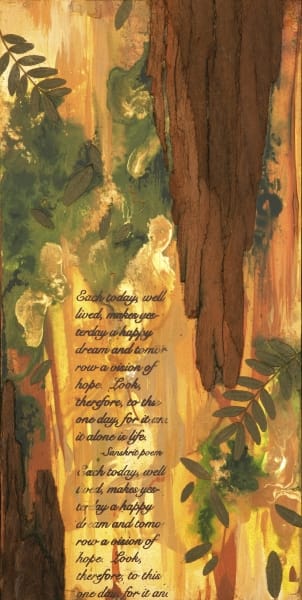 Each today, well
lived, makes yes-
terday a happy
dream and tomor
row a vision of
hope. Look,
therefore, to this
one day, for it and
it alone is life.
-Sanskrit poem
Each today, well
lived, makes yes-
terday a happy
dream and tomo
row a vision of
hope. Look,
therefore, to this
one day, for it and